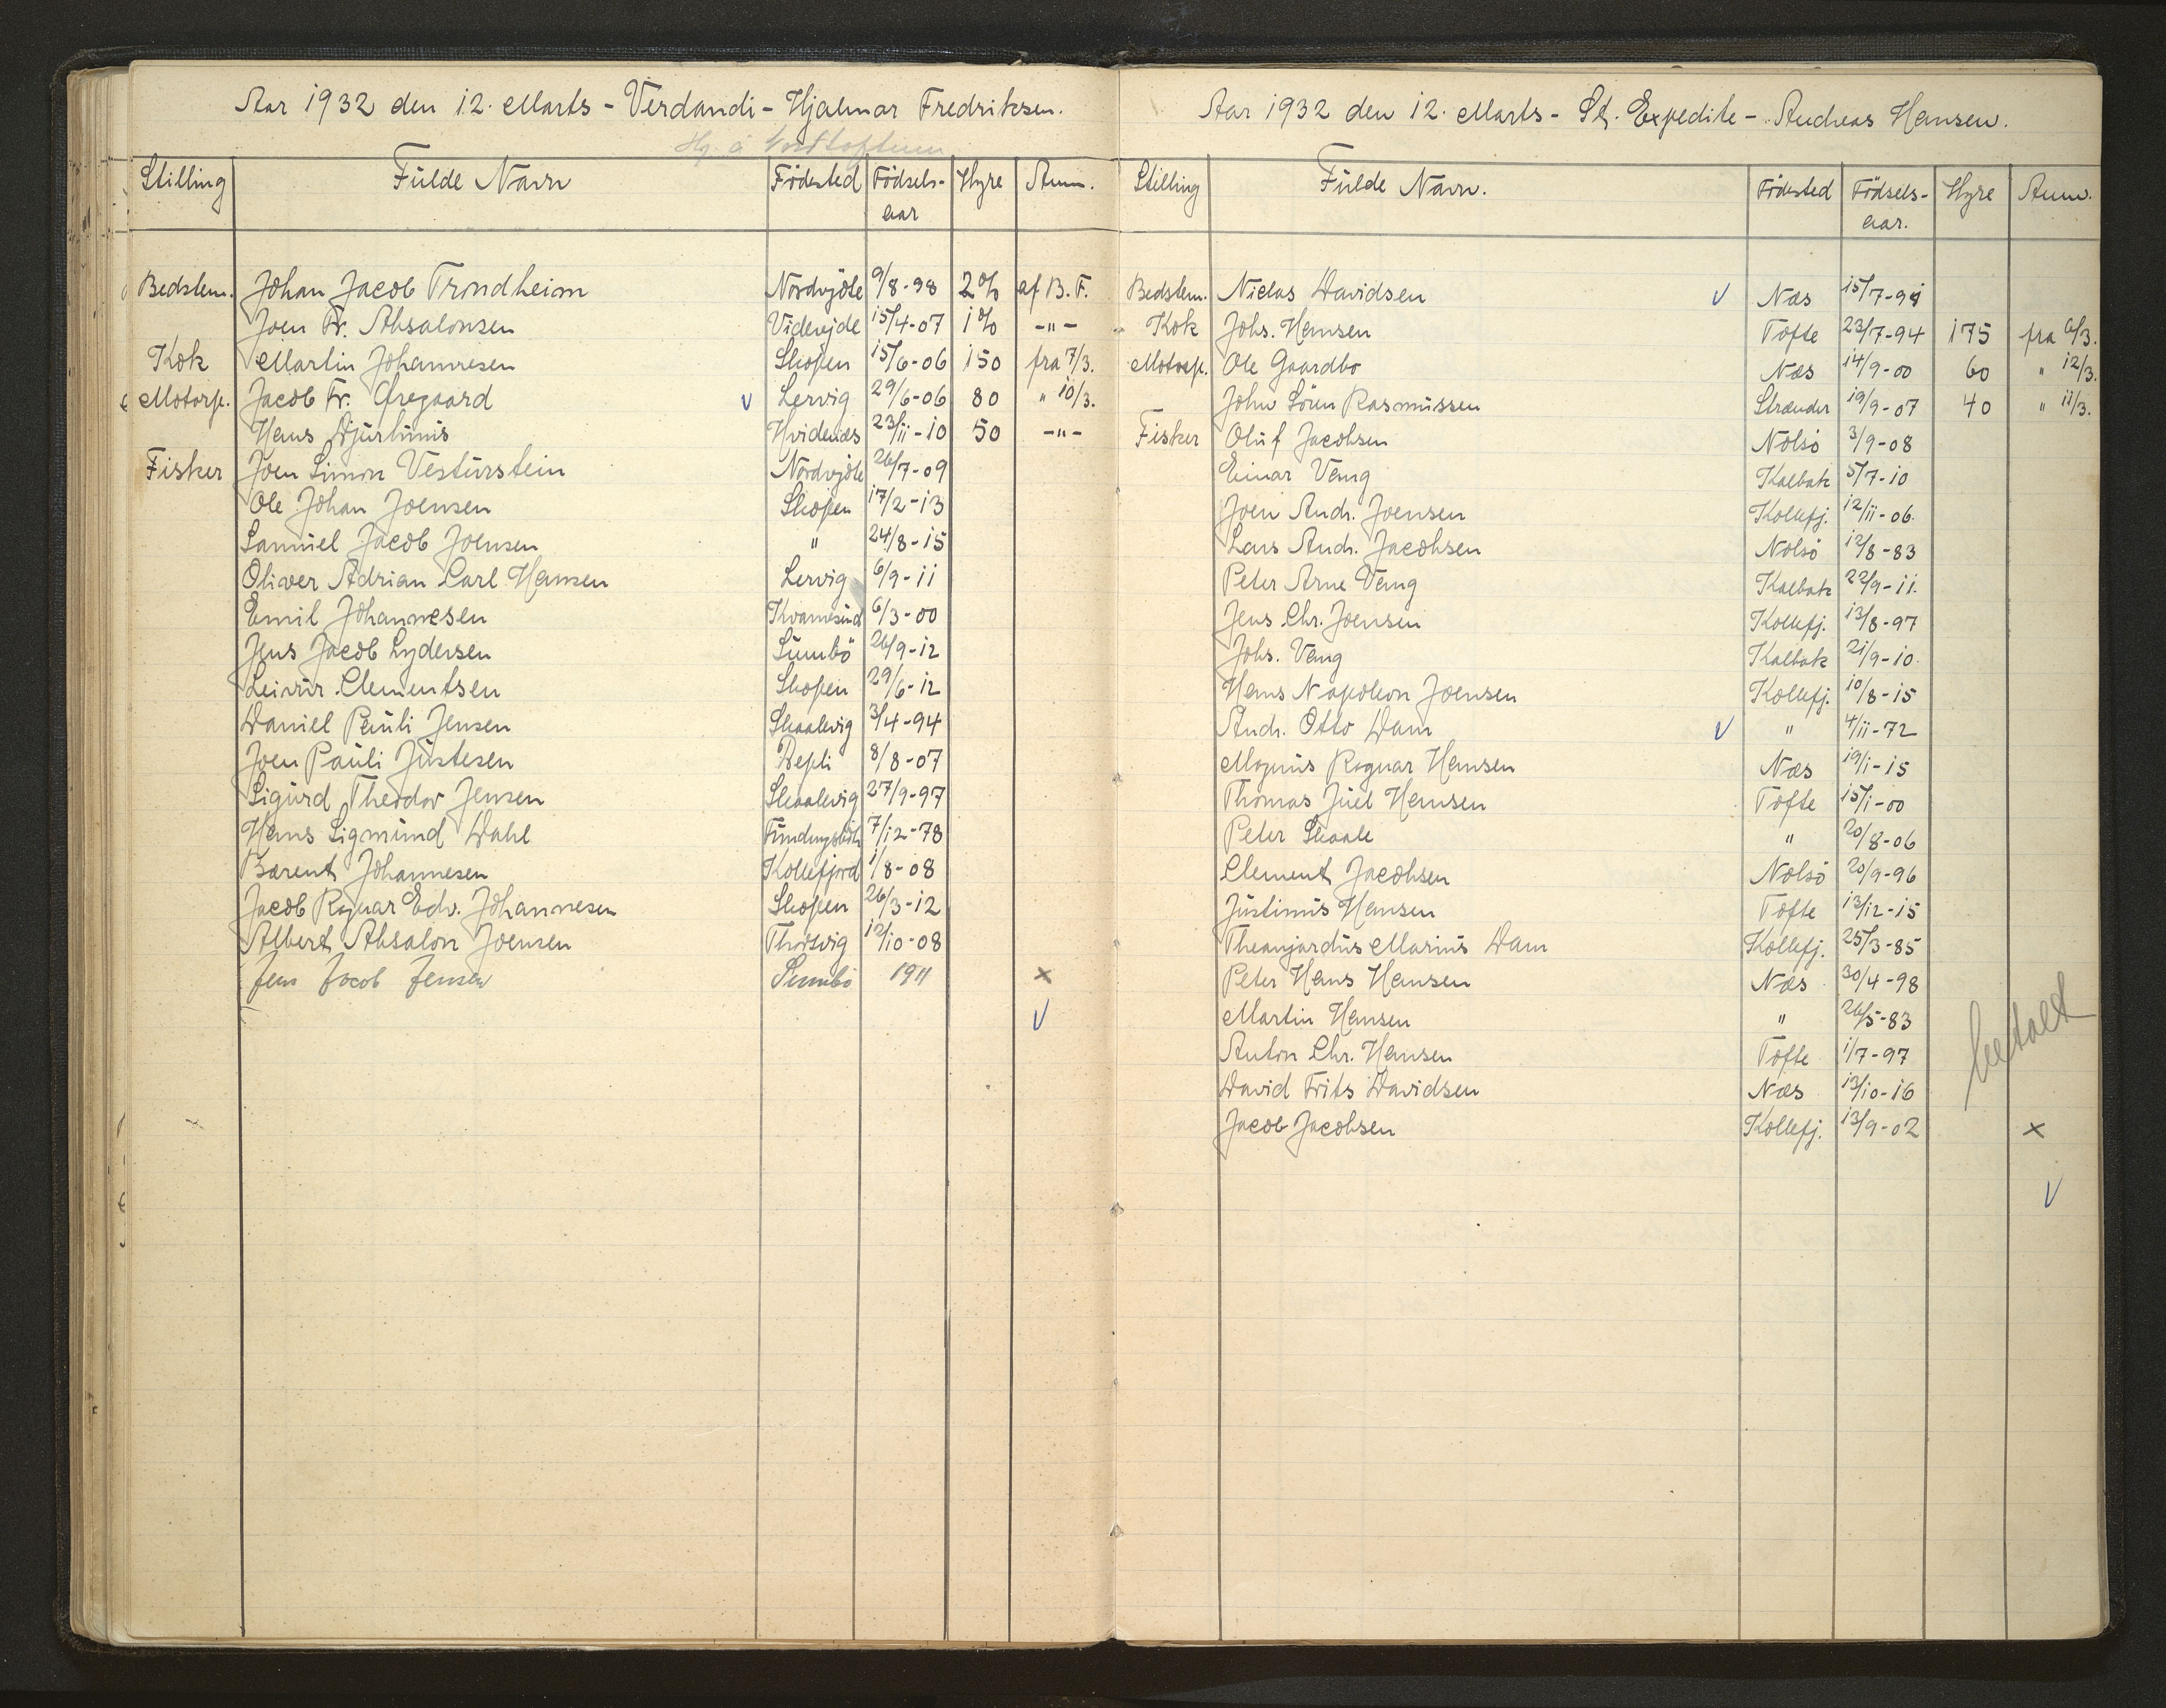 Aar 1932 den 12. Marts - Verdandi - Hjalmar Fredriksen.
Stilling Fülde Navn Födested Födsels-aar Hyre Anm.
Bedstem. Johan Jacob Trondheim Nordvjöle 9/8-98 2% af B.F.
Joen Fr. Absalonsen Videvjde 15/4-07 1% -"-
Kok Martin Johannesen Skopen 15/6-06 150 fra 7/3.
Motorp. Jacob Fr. Öregaard V Lervig 29/6-06 80 " 10/3.
Hans Djurhuus Hvidenæs 23/11-10 50 -"-
Fisker Joen Simon Vesturstein Nordvjöle 26/7-09
Ole Johan Joensen Skopen 17/2-13
Samuel Jacob Joensen " 24/8-15
Oliver Adrian Carl Hansen Lervig 6/9-11
Emil Johannesen Kvannesund 6/3-00
Jens Jacob Lydersen Sumbö 26/9-12
Leivur Clementsen Skopen 29/6-12
Daniel Pauli Jensen Skaalevig 3/4-94
Joen Pauli Justesen Depli 8/8-07
Sigurd Theodor Jensen Skaalevig 27/9-97
Hans Sigmund Dahl 7/12-78
Barent Johannesen Kollefjord 1/8-08
Jacob Ragnar Edv. Johannesen Skopen 26/3-12
Albert Absalon Joensen Thorsvig 12/10-08
Jens Jacob Jensen Sumbö 1911 x
V
Aar 1932 den 12. Marts - St. Expedite - Andreas Hansen.
Stilling Fülde Navn. Födested Födsels-aar. Hyre Anm.
Bedstem. Niclas Davidsen V Næs 15/7-91
Kok Johs. Hansen Tofte 23/7-94 175 fra 6/3.
Motorp. Ole Gaardbo Næs 14/9-00 60 " 12/3.
John Sören Rasmussen Strænder 19/9-07 40 " 11/3.
Fisker Oluf Jacobsen Nolsö 3/9-08
Einar Veng Kalbak 5/7-10
Joen Andr. Joensen Kollefj. 12/11-06.
Lars Andr. Jacobsen Nolsö 12/8-83
Peter Arne Veng Kalbak 22/9-11.
Jens Chr. Joensen Kollefj. 13/8-97
Johs. Veng Kalbak 21/9-10.
Hans Napoleon Joensen Kollefj. 10/8-15
Andr. Otto Dam V " 4/11-72
Magnus Ragnar Hansen Næs 19/1-15
Thomas Juel Hansen Tofte 15/1-00
Peter Skaale " 20/8-06
Clement Jacobsen Nolsö 20/9-96
Justinus Hansen Tofte 13/12-15
Theangardus Marius Dam Kollefj. 25/3-85
Peter Hans Hansen Næs 30/4-98
Martin Hansen " 26/5-83
Anton Chr. Hansen Tofte 1/7-97
David Frits Davidsen Næs 13/10-16
Jacob Jacobsen Kollefj. 13/9-02 x
betalt
V